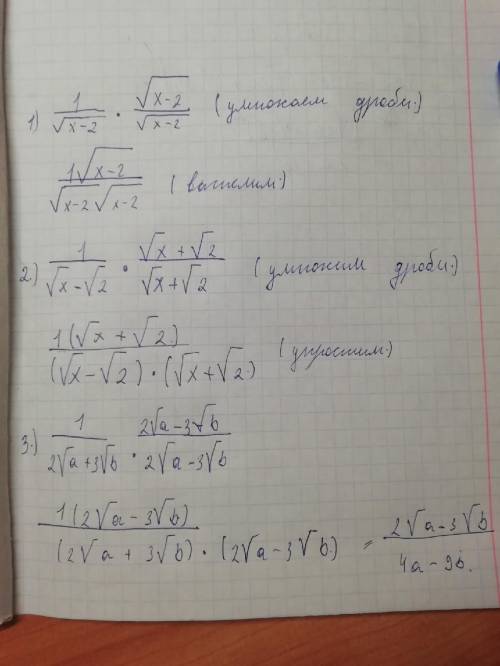 1) 1/√(x-2) · √(x-2)/√(x-2) (умножаем дроби.)
1√(x-2)/(√(x-2)√(x-2)) (
2.) 1/(√x-√2) · (√x+√2)/(√x+√2) (умножим дроби.)
1(√x+√2)/((√x-√2)·(√x+√2)) (упростим.)
3.) 1/(2√a+3√b) · (2√a-3√b)/(2√a-3√b)
1(2√a-3√b)/((2√a+3√b)·(2√a-3√b)) = (2√a-3√b)/(4a-9b.)